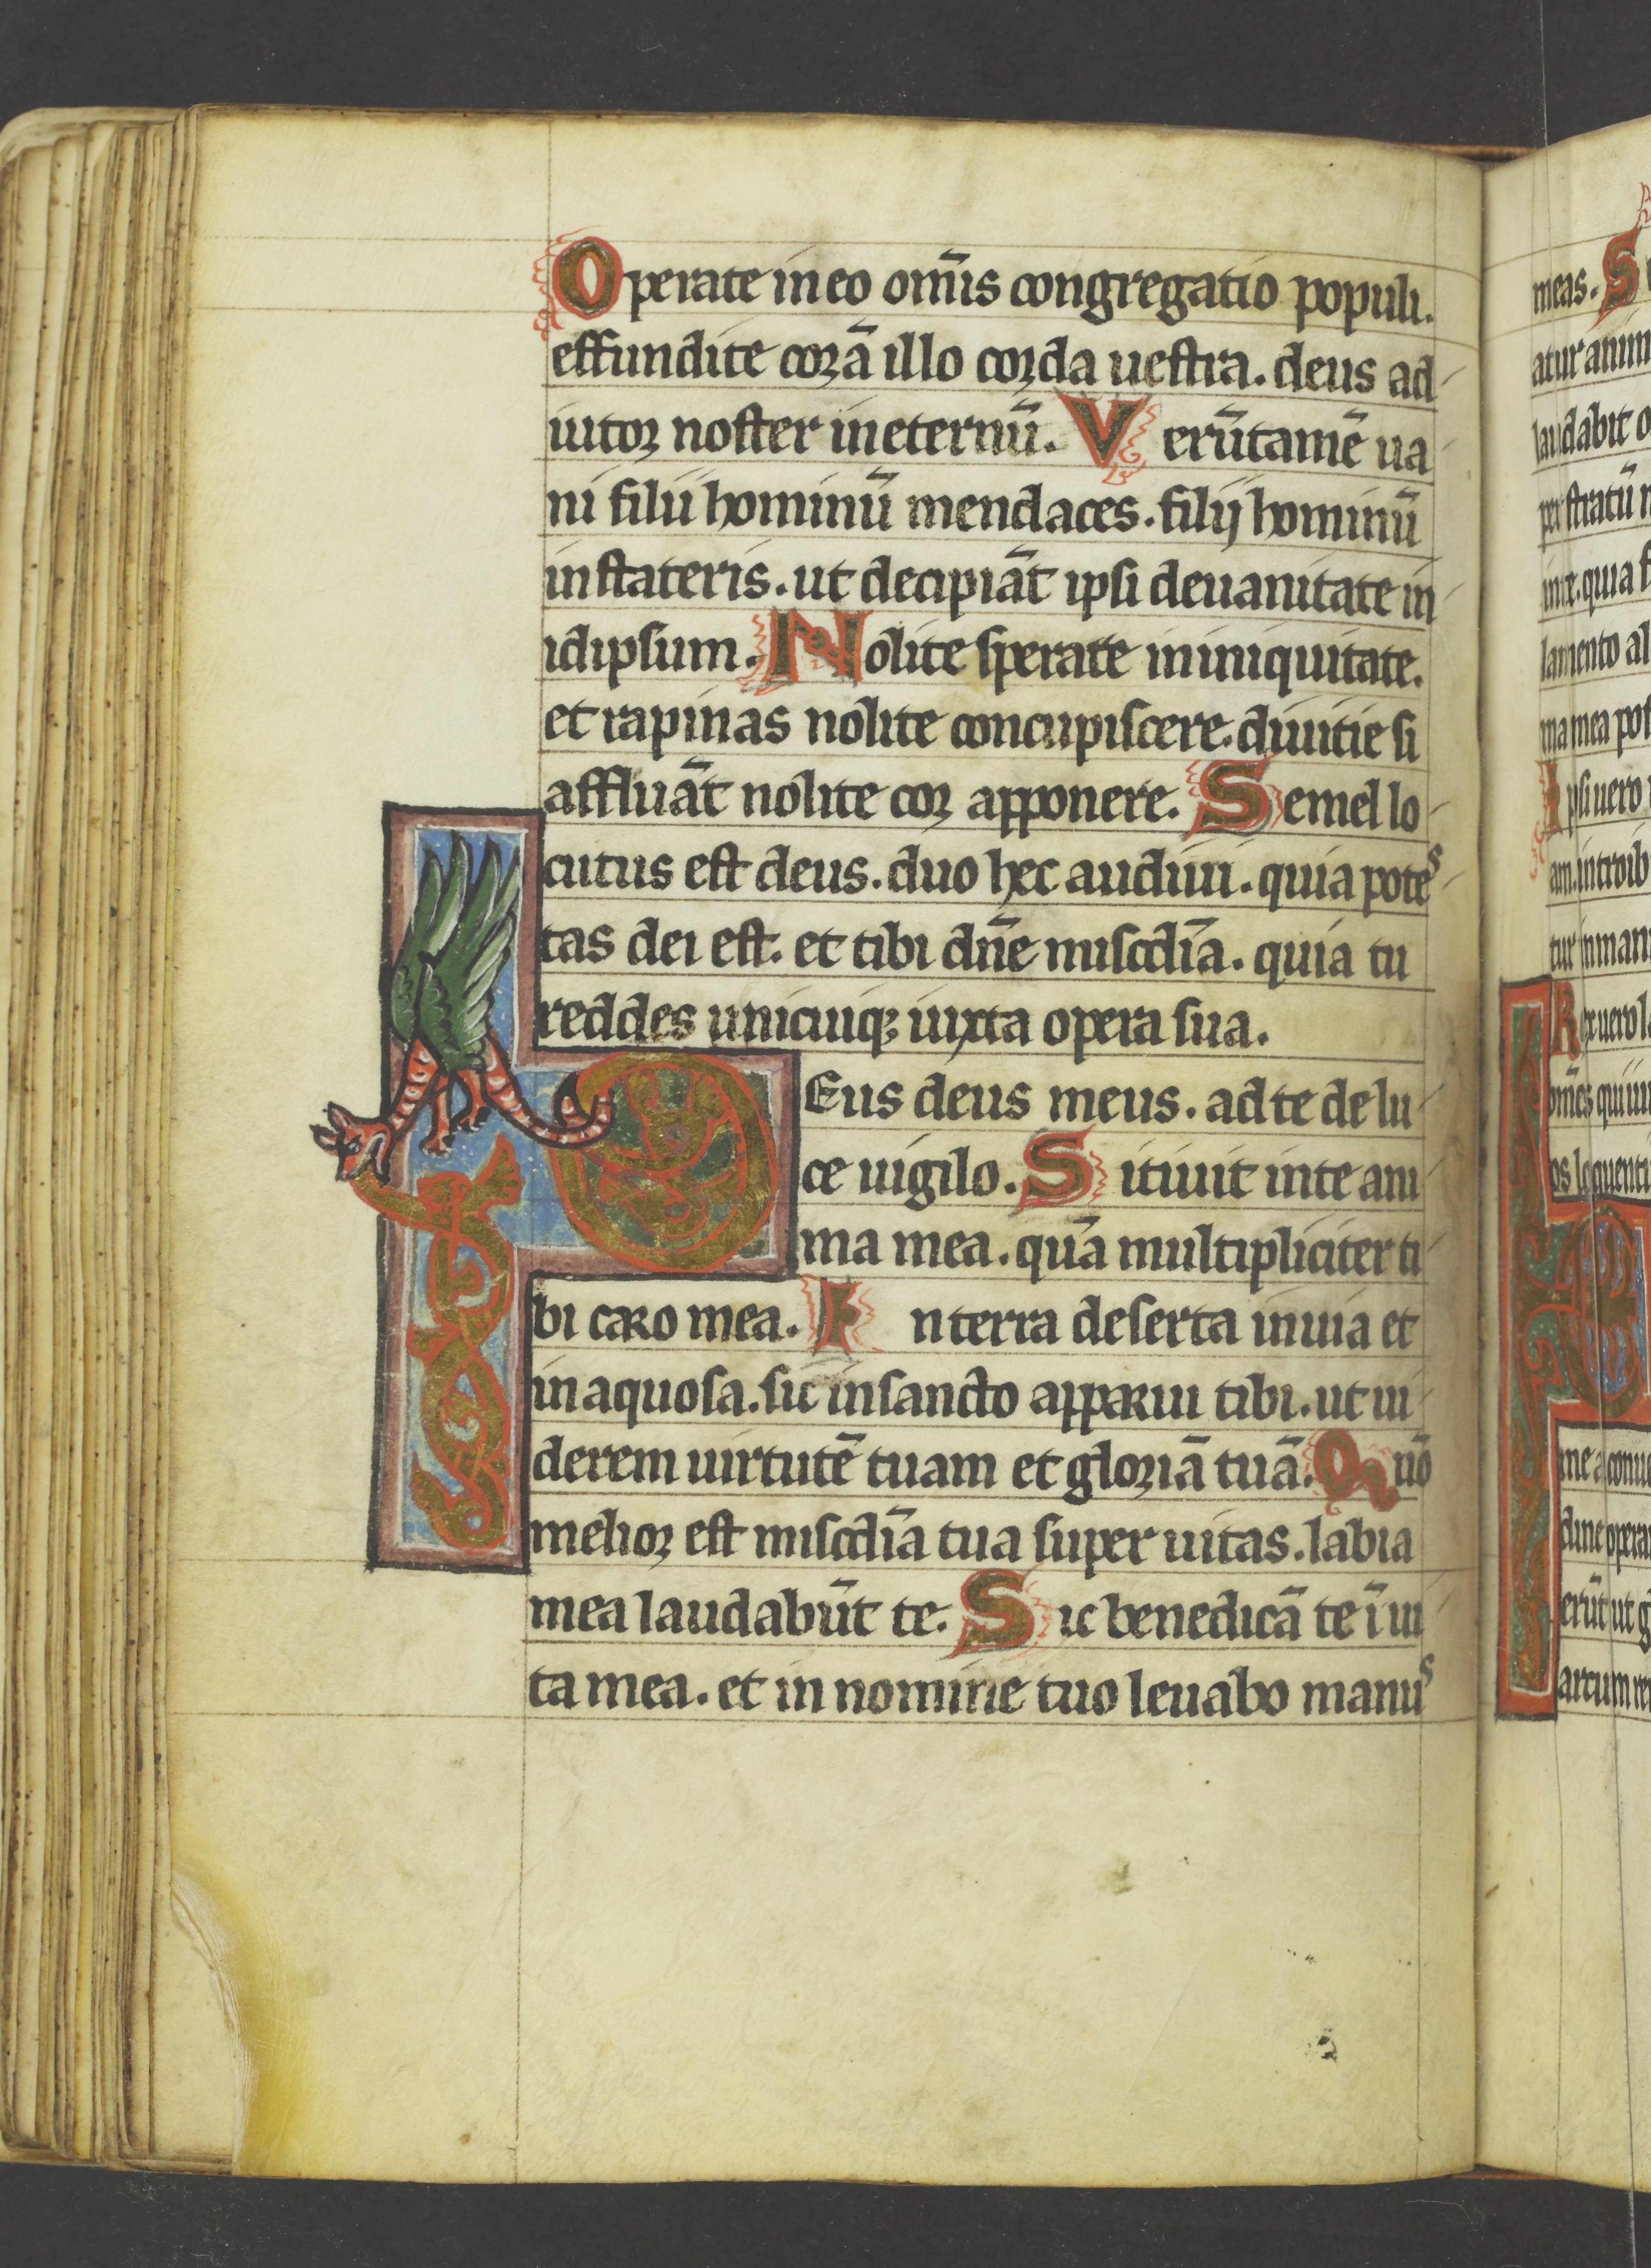 Operate in eo om̄is congregatio populi.
effundite corā illo corda uestra. deus ad
iutor noster in eternū. Verūtamē ua
ni filii hominū mendaces. filij hominū
in stateris. ut decipiāt ipsi de uanitate in
idipsum. Nolite sperate in iniquitate.
et rapinas nolite concupiscere. diuitie si
affluāt nolite cor apponere. Semel lo
cutus est deus. duo hec audiui. quia potes
tas dei est. et tibi dn̄e miscd̄ia. quia tu
reddes unicuiqꝫ iuxta opera sua.
Eus deus meus. ad te de lu
ce uigilo. Sitiuit in te ani
ma mea. quā multipliciter ti
bi caro mea. In terra deserta inuia et
inaquosa. sic in sancto apparui tibi. ut ui
derem uirtutē tuam et gloriā tuā. Quō
melior est miscd̄ia tua super uitas. labia
mea laudabūt te. Sic benedicā te ī ui
ta mea. et in nomine tuo leuabo manus
meas. S
atur anim
laudabit o
per stratū m
in te. quia f
lamento al
ma mea pos
Ipsi uero
am. introib
tur in man
Rex uero l
om̄es qui iur
os loquenti
me a conue
dine opera
erūt ut g
arcum re